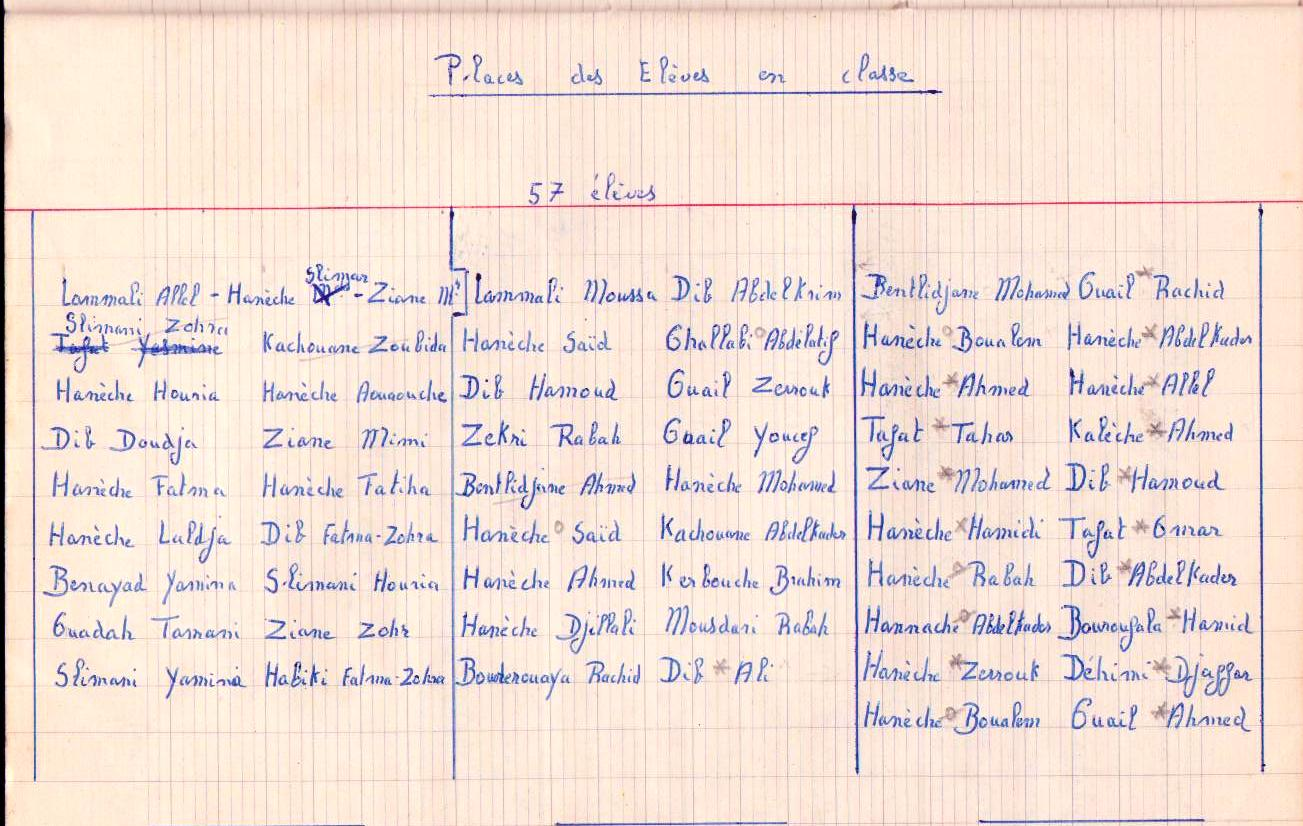 Places des Elèves en classe
57 élèves
Slimar
Lammali Allel - Hanèche - Ziane Md Lammali Moussa Dib Abdelkrim Bentlidjane Mohamed Ouail * Rachid
Slimani Zohra
Tafat Yasmine Kachouane Zoubida Hanèche Saïd Ghallabi o Abdelatif Hanèche o Boualem Hanèche * Abdelkader
Hanèche Houria Hanèche Aouaouche Dib Hamoud Ouail Zerrouk Hanèche * Ahmed Hanèche * Allel
Dib Doudja Ziane Mimi Zekri Rabah Ouail Youcef Tafat * Tahar Kalèche * Ahmed
Hanèche Fatma Hanèche Fatiha Bentlidjane Ahmed Hanèche Mohamed Ziane * Mohamed Dib * Hamoud
Hanèche Luldja Dib Fatma-Zohra Hanèche o Saïd Kachouane Abdelkader Hanèche x Hamidi Tafat * Omar
Benayad Yamina Slimani Houria Hanèche Ahmed Kerbouche Brahim Hanèche o Rabah Dib * Abdelkader
Ouadah Tamani Ziane Zohr Hanèche Djillali Mousdari Rabah Hannache o Abdelkader Bourougala * Hamid
Slimani Yamina Habiki Fatma-Zohra Bouterouaya Rachid Dib * Ali Hanèche * Zerrouk Déhimi * Djaffar
Hanèche o Boualem Ouail * Ahmed